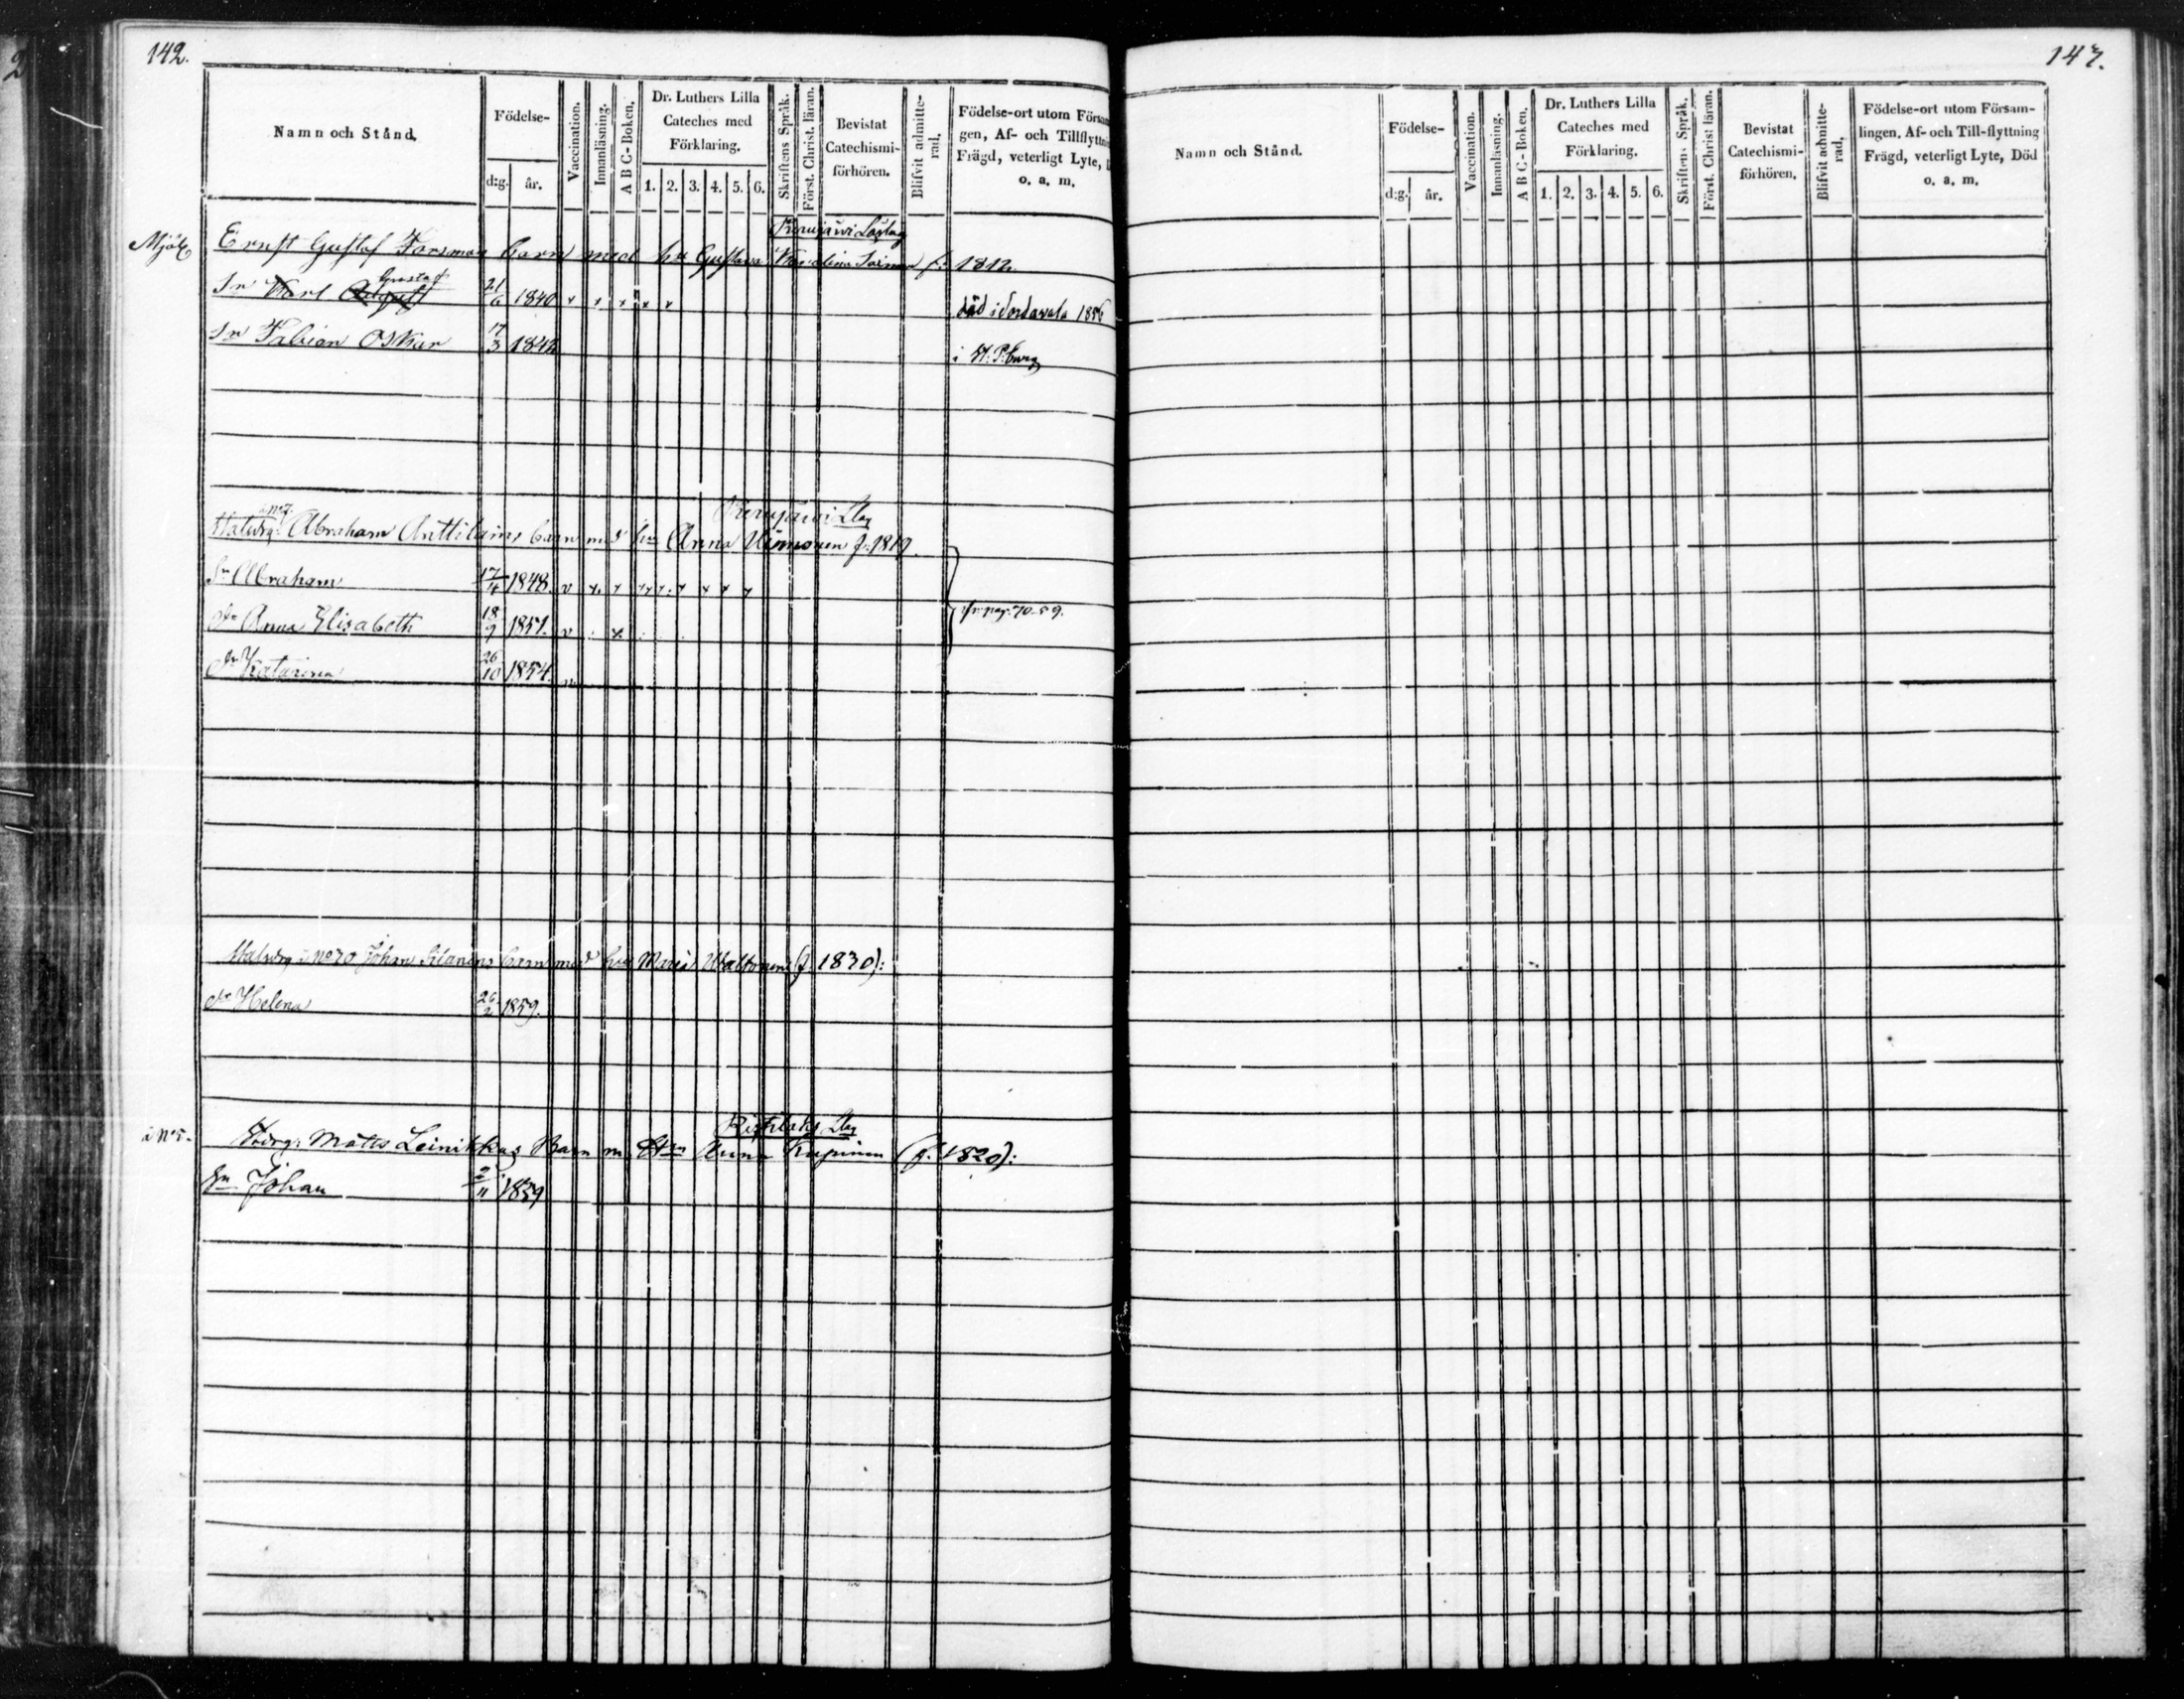 142.
Namn och Stånd.
Födelse-
d:g.
år.
Vaccination.
Innanläsning.
A B C-Boken.
Dr. Luthers Lilla
Cateches med
Förklaring.
1. 2. 3. 4. 5. 6.
Skriftens Språk.
Först. Christ. läran.
Bevistat
Catechismi-
förhören.
Blifvit admitte-
rad.
Födelse-ort utom Försam
gen, Af- och Tillflyttni
Frägd, veterligt Lyte, D
o. a. m.
Ernst Gustaf Forsman barn med hu Gustava Karolina f: 1812.
Gustaf
Sn Karl August 21/6 1840 död i Sordavala 1856
Sn Fabian Oskar 17/3 1842 i St. P.burg
Abraham Anttilains barn med hu Anna f. 1819.
Sn Abraham 17/4 1848. v
Dr Anna Elisabeth 18/9 1851. v
pag. 70. 59.
Dr Katarina 26/10 1854.
No 70 Johan barn med hu Maria Waltonen (f. 1830):
Dr Helena 26/2 1859.
à No 5. Matts Leinikkas Barn m. Hu Anna (f. 1820):
Sn Johan 2/11 1859
147.
Namn och Stånd.
Födelse-
d:g.
år.
Vaccination.
Innanläsning.
A B C-Boken.
Dr. Luthers Lilla
Cateches med
Förklaring.
1. 2. 3. 4. 5. 6.
Skriftens Språk.
Först. Christ läran.
Bevistat
Catechismi-
förhören.
Blifvit admitte-
rad.
Födelse-ort utom Försam-
lingen, Af- och Till-flyttning
Frägd, veterligt Lyte, Död
o. a. m.